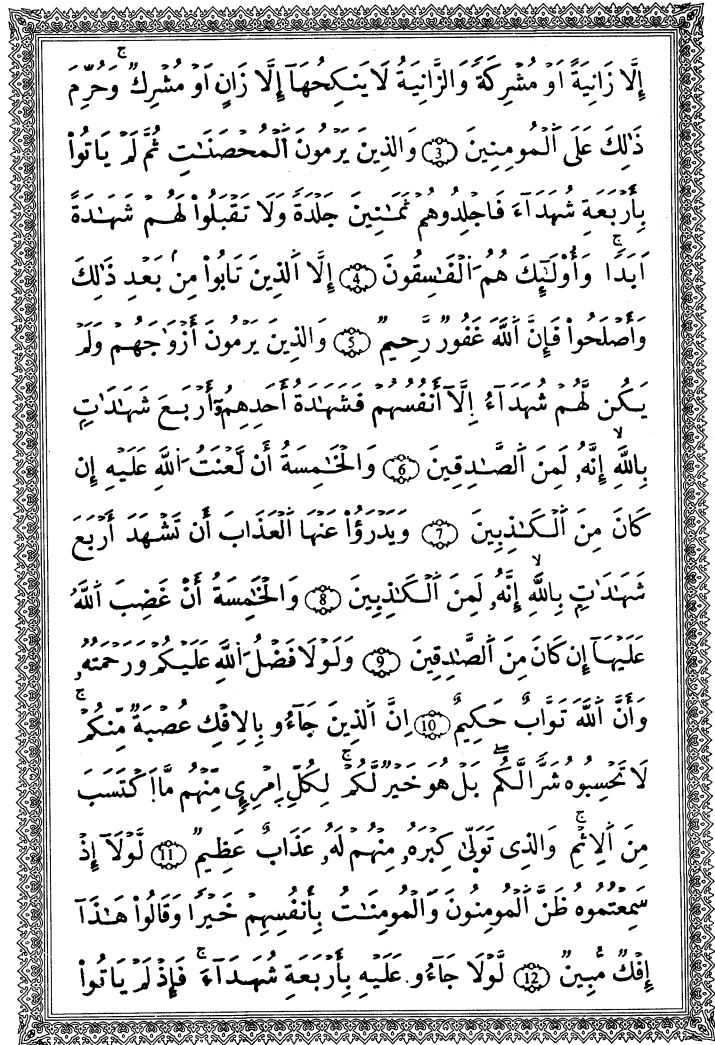 إِلَّا زَانِيَةً اَوْ مُشْرِكَةً وَالزَّانِيَةُ لَا يَنكِحُهَآ إِلَّا زَانٍ اَوْ مُشْرِكٌ ۚ وَحُرِّمَ
ذَٰلِكَ عَلَى اَ۬لْمُومِنِينَ (3) وَالذِينَ يَرْمُونَ اَ۬لْمُحْصَنَٰتِ ثُمَّ لَمْ يَاتُواْ
بِأَرْبَعَةِ شُهَدَآءَ فَاجْلِدُوهُمْ ثَمَٰنِينَ جَلْدَةً وَلَا تَقْبَلُواْ لَهُمْ شَهَٰدَةً
اَبَدًا ۚ وَأُوْلَٰٓئِكَ هُمُ اُ۬لْفَٰسِقُونَ (4) إِلَّا اَ۬لذِينَ تَابُواْ مِنۢ بَعْدِ ذَٰلِكَ
وَأَصْلَحُواْ فَإِنَّ اَ۬للَّهَ غَفُورٌ رَّحِيمٌ (5) وَالذِينَ يَرْمُونَ أَزْوَٰجَهُمْ وَلَمْ
يَكُن لَّهُمْ شُهَدَآءُ اِلَّآ أَنفُسُهُمْ فَشَهَٰدَةُ أَحَدِهِمُۥٓ أَرْبَعَ شَهَٰدَٰتٍ
بِاللَّهِ ۙ إِنَّهُۥ لَمِنَ اَ۬لصَّٰدِقِينَ (6) وَالْخَٰمِسَةُ أَن لَّعْنَتُ اُ۬للَّهِ عَلَيْهِ إِن
كَانَ مِنَ اَ۬لْكَٰذِبِينَ (7) وَيَدْرَؤُاْ عَنْهَا اَ۬لْعَذَابَ أَن تَشْهَدَ أَرْبَعَ
شَهَٰدَٰتٍۢ بِاللَّهِ ۙ إِنَّهُۥ لَمِنَ اَ۬لْكَٰذِبِينَ (8) وَالْخَٰمِسَةُ أَنْ غَضِبَ اَ۬للَّهُ
عَلَيْهَآ إِن كَانَ مِنَ اَ۬لصَّٰدِقِينَ (9) وَلَوْلَا فَضْلُ اُ۬للَّهِ عَلَيْكُمْ وَرَحْمَتُهُۥ
وَأَنَّ اَ۬للَّهَ تَوَّابٌ حَكِيمٌ (10) اِنَّ اَ۬لذِينَ جَآءُو بِالِافْكِ عُصْبَةٌ مِّنكُمْ ۚ
لَا تَحْسِبُوهُ شَرًّا لَّكُم ۖ بَلْ هُوَ خَيْرٌ لَّكُمْ ۚ لِكُلِّ اِمْرِيٕٖ مِّنْهُم مَّا اَ۪كْتَسَبَ
مِنَ اَ۬لِاثْمِ ۚ وَالذِى تَوَلَّىٰ كِبْرَهُۥ مِنْهُمْ لَهُۥ عَذَابٌ عَظِيمٌ (11) لَّوْلَآ إِذْ
سَمِعْتُمُوهُ ظَنَّ اَ۬لْمُومِنُونَ وَالْمُومِنَٰتُ بِأَنفُسِهِمْ خَيْرًا وَقَالُواْ هَٰذَآ
إِفْكٌ مُّبِينٌ (12) لَّوْلَا جَآءُو عَلَيْهِ بِأَرْبَعَةِ شُهَدَآءَ ۚ فَإِذْ لَمْ يَاتُواْ